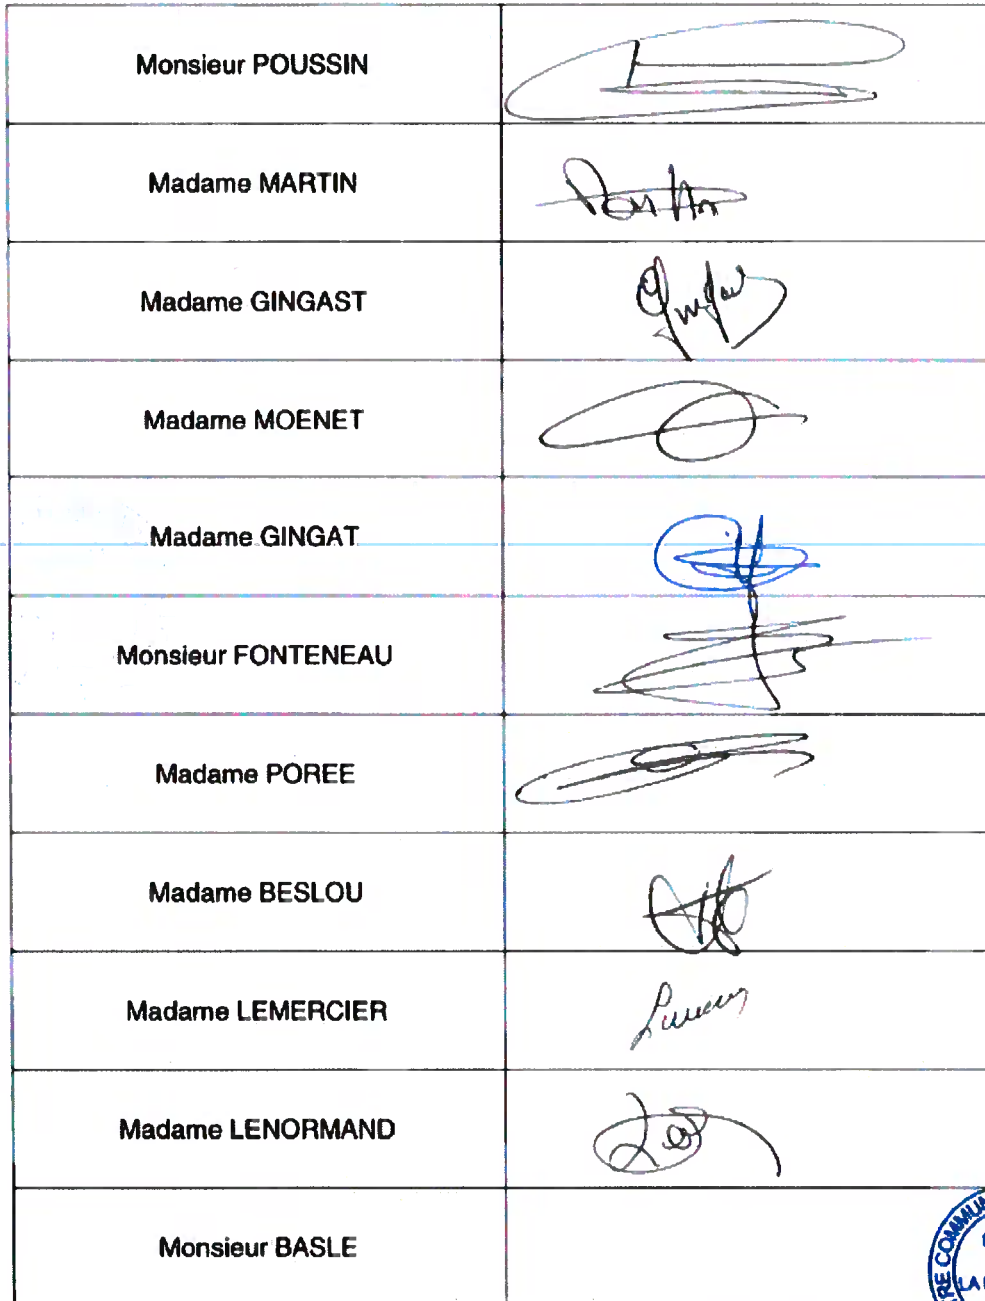 Monsieur POUSSIN
Madame MARTIN
Madame GINGAST
Madame MOENET
Madame GINGAT
Monsieur FONTENEAU
Madame POREE
Madame BESLOU
Madame LEMERCIER
Madame LENORMAND
Monsieur BASLE